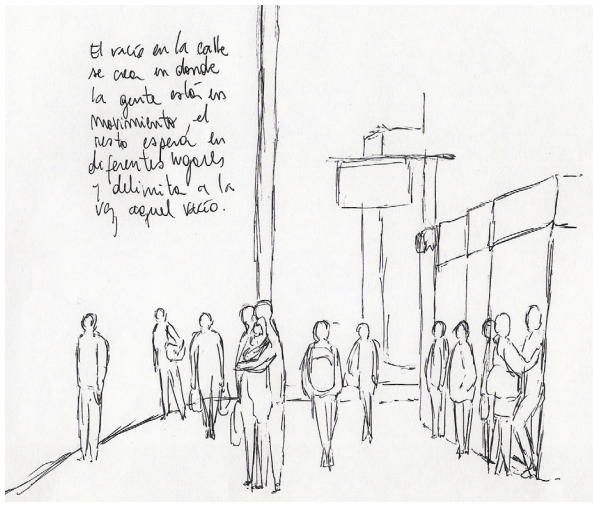 El vacío en la calle
se crea en donde
la gente está en
movimiento, el
resto espera en
diferentes lugares
y delimita a la
vez aquel vacío.